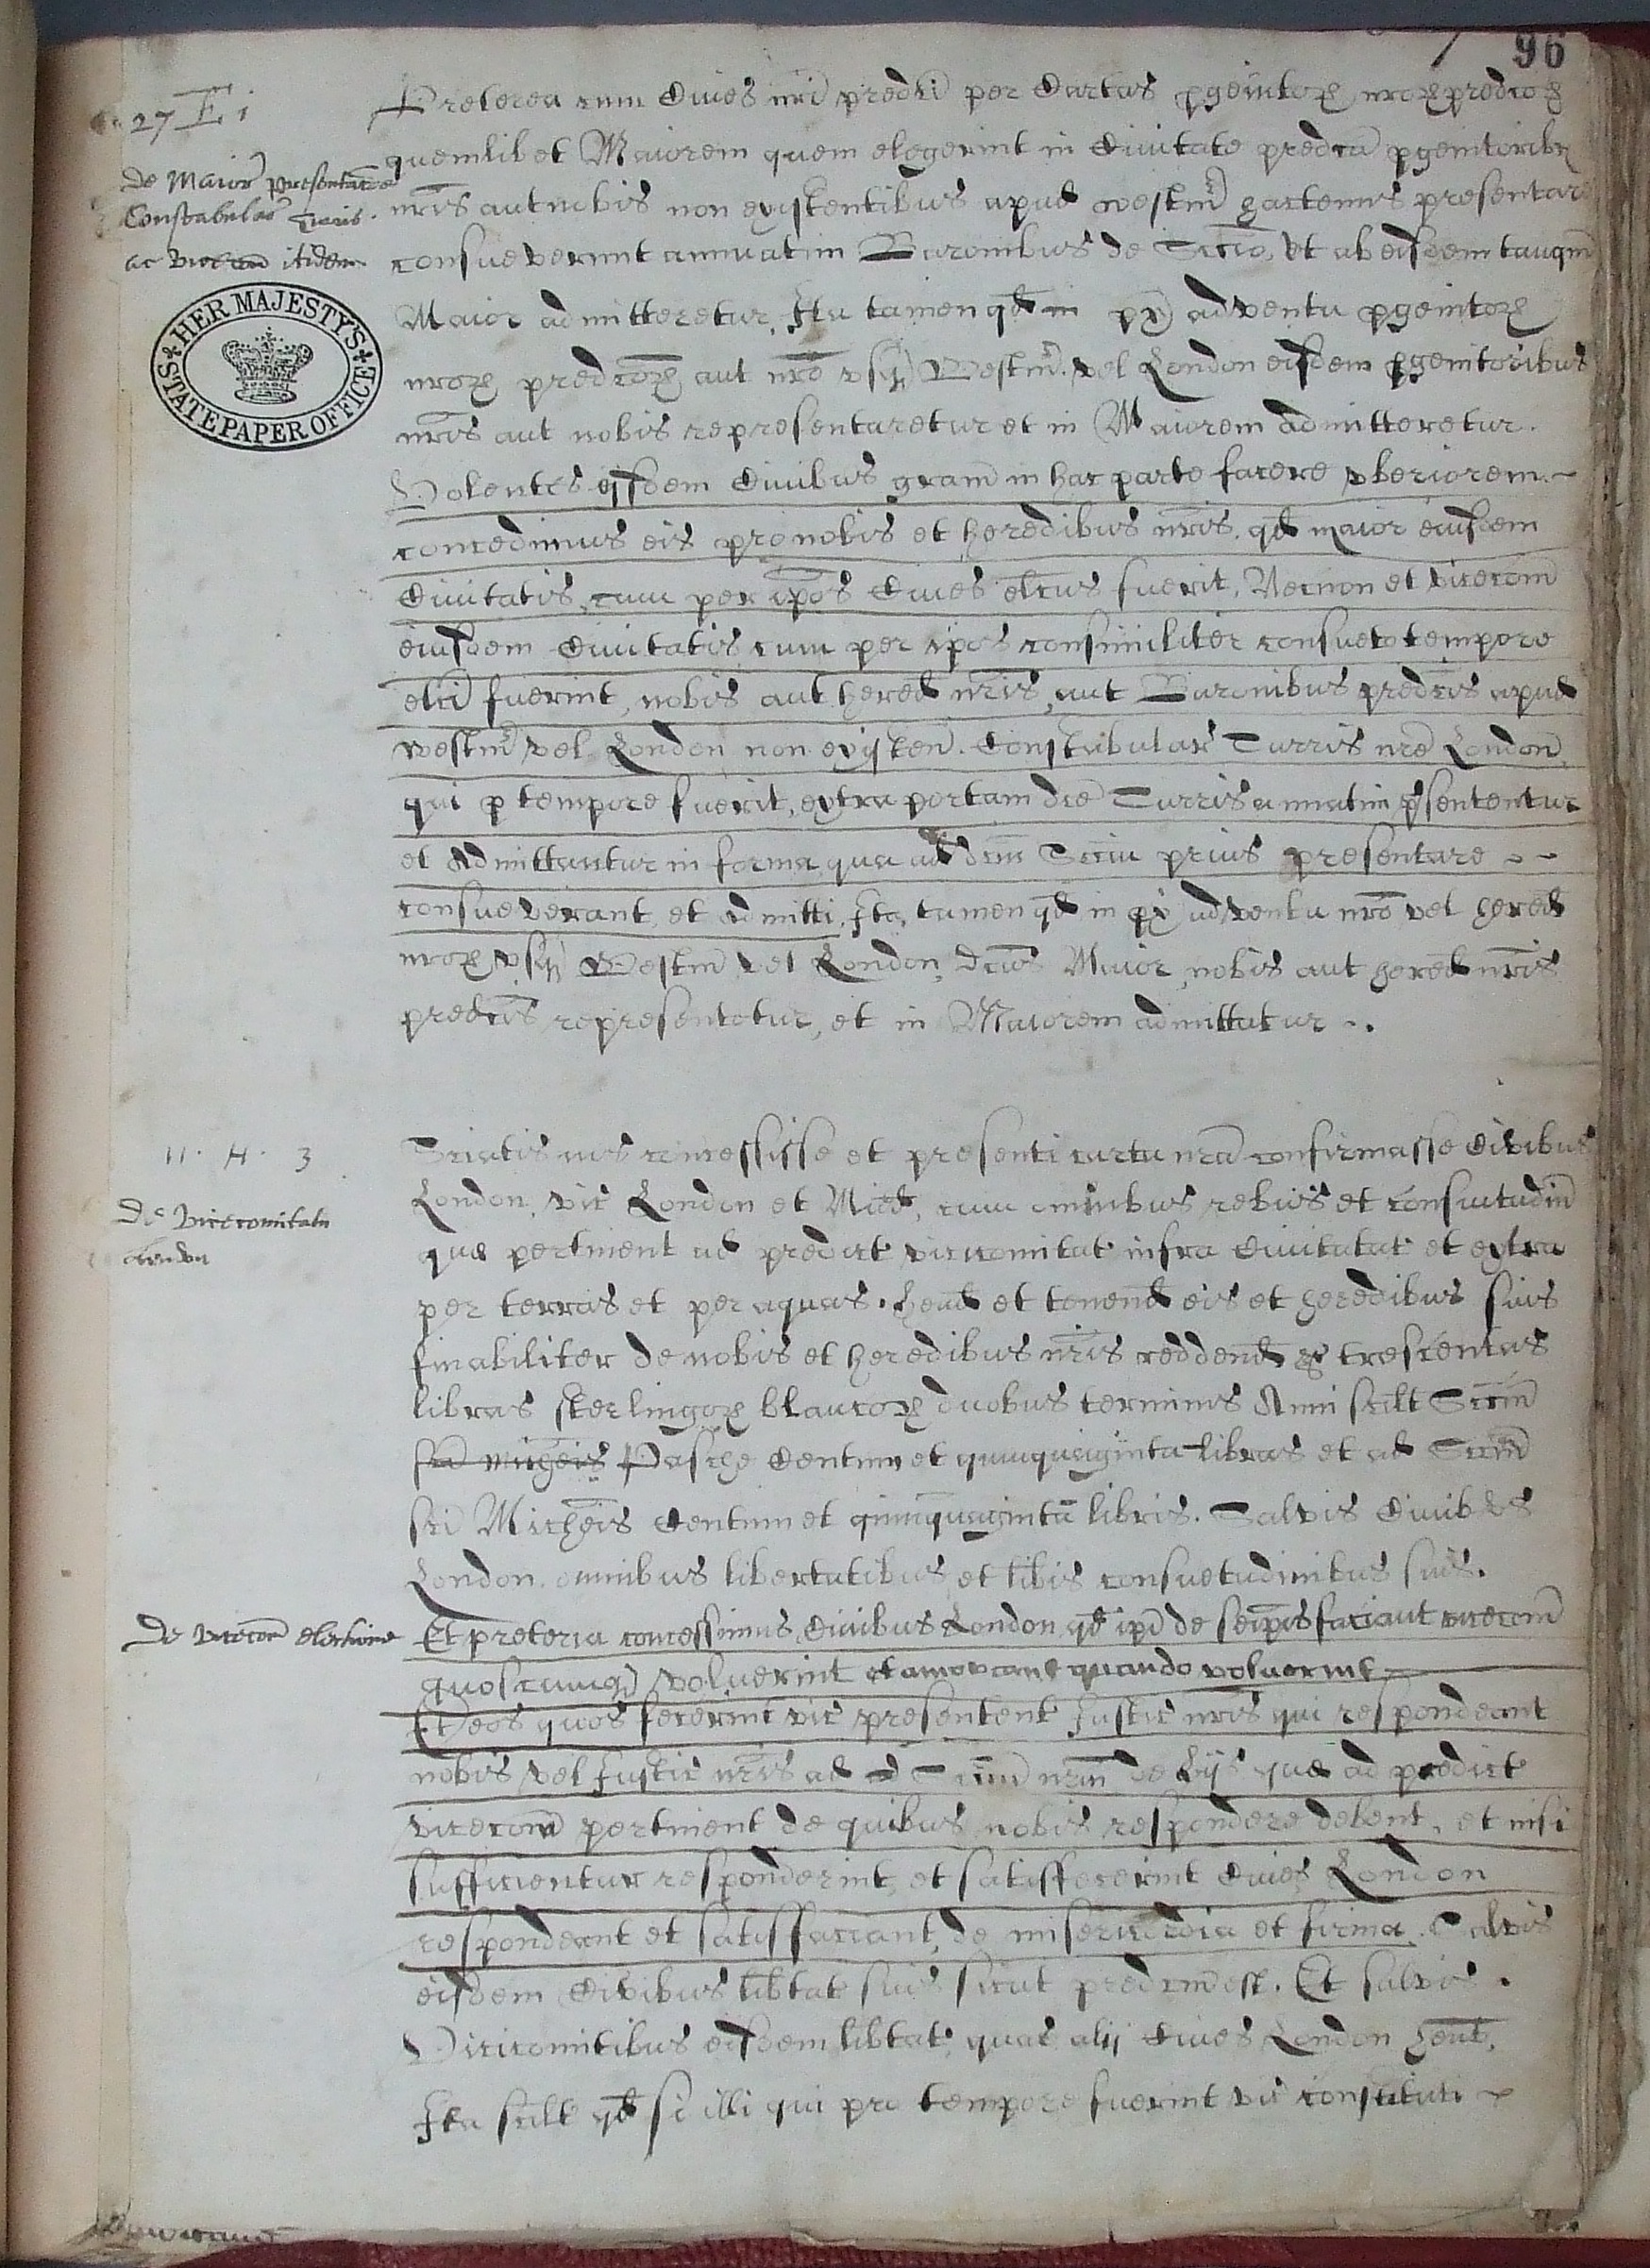 96
27 E i
Preterea cum Ciues nri predci per Cartas pgenitoꝝ nroꝝ predcoꝝ
quemlibet Maiorem quem elegerint in Ciuitate predca pgenitoribꝫ
De Maior presentacõe
Constabular Turis.
ac vicecom itidem
nris aut nobis non existentibus apud westm̃ hactenus presentare
consueverunt annuatim Baronibus de Sccio, et ab eisdem tanqm̃
HER MAJESTY'S
STATE PAPER OFFICE
Maior admitteretur, Ita tamen qd in px̃ adventu pgenitoꝝ
nroꝝ predcoꝝ aut nrõ vsqꝫ Westm̃ vel London eisdem pgenitoribus
nris aut nobis representaretur et in Maiorem admitteretur.
Volentes eisdem Ciuibus gram in hac parte facere vberiorem
concedimus eis pro nobis et heredibus nris, qd maior eiusdem
Ciuitatis, cum per ipõs Ciues eltus fuerit, Necnon et vicecom̃
eiusdem Ciuitatis cum per ipos consimiliter consueto tempore
elti fuerint, nobis aut hered nris, aut Baronibus predcis apud
westm̃ vel London non existen. Constabular Turris nrẽ London,
qui p tempore fuerit, extra portam dce Turris annuatim psententur
et admittantur in forma qua ad dcm Sccm prius presentare
consueverant, et admitti, Ita, tamen qd in px̃ adventu nrõ vel hered
nroꝝ vsqꝫ Westm̃ vel London, dcus Maior, nobis aut hered nris
predcis representetur, et in Maiorem admittatur.
11. H. 3
Sciatis nos concessisse et presenti carta nra confirmasse Civibus
De vicecomitatu
London
London, vic London et Midd, cum omnibus rebus et consuetudin̄
que pertinent ad predict vicecomitat infra Ciuitatat et extra
per terras et per aquas. hend et tenend eis et heredibus suis
finabiliter de nobis et heredibus nris reddend trescentas
libras sterlingoꝝ blancoꝝ duobus terminis Anni scilt Sccm̃
sci Micheis Pasche Centum et quinquaginta libras et ad Sccm̃
sci Micheis Centum et quinquaginta libris. Salvis Ciuibus
London. omnibus libertatibus et libis consuetudinibus suis.
De vicecom̃ electione
Et preteria concessimus Ciuibus London, qd ipi de seipis faciant vicecom̃
quoscumqꝫ voluerint et amoveant quando voluerint
Et eos quos fecerint vic presentent Justic nris qui respondeant
nobis, vel Justic nris ad ad Sccm̃ nrm̃ de hijs que ad predict
vicecom̃ pertinent de quibus nobis respondere debent, et nisi
sufficientur responderint, et satisfecerint Ciues London
respondeant et satisfaciant, de misericordia et firma. Salvis
eisdem Civibus libtat suis sicut predcm̃ est. Et salvis.
Vicicomitibus eisdem libtat quas alij Ciues London hent,
Ita scilt qd si illi qui pro tempore fuerint vic constituti